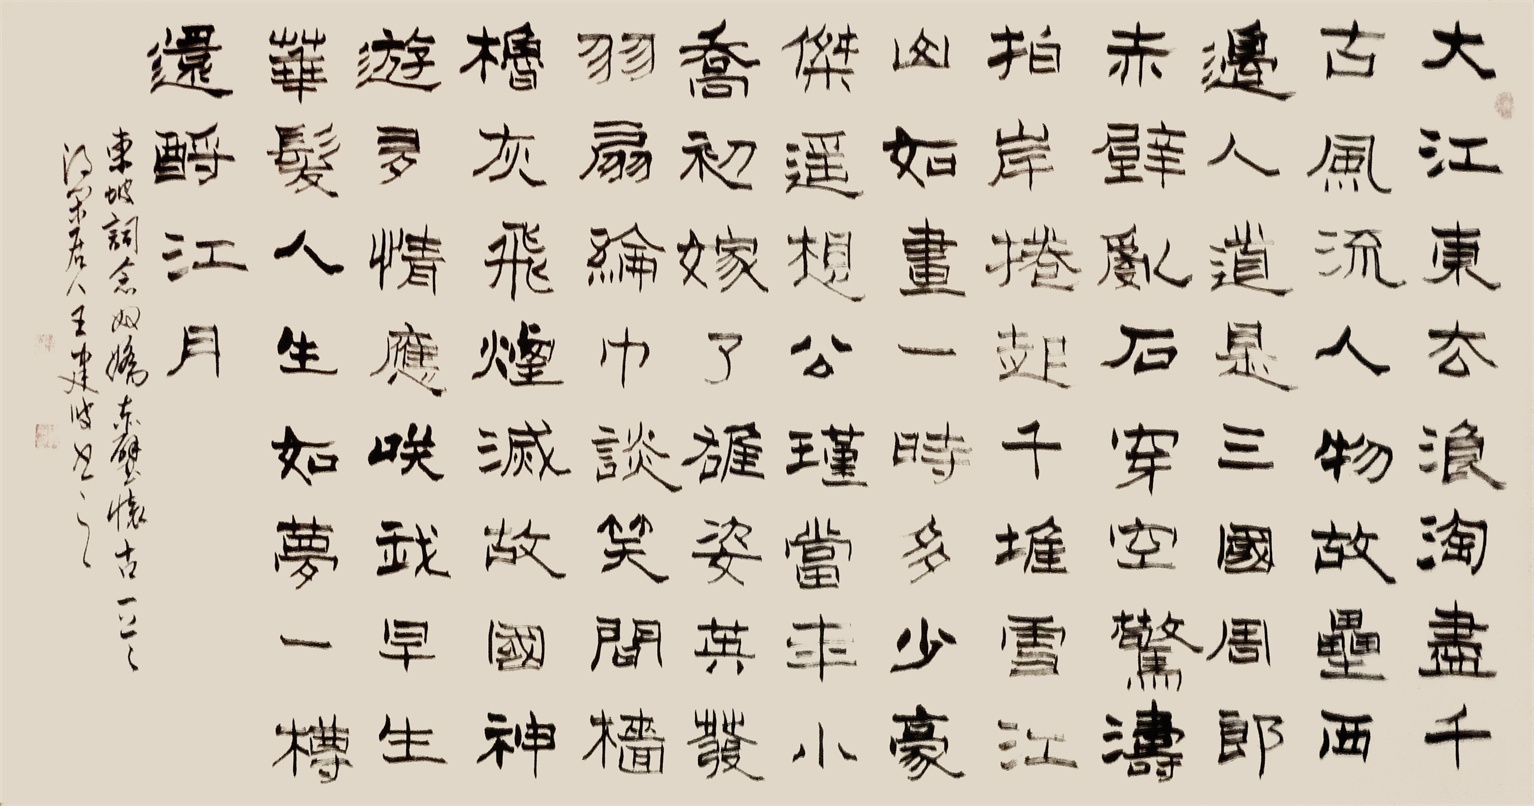 大江東去浪淘盡千
古風流人物故壘西
邊人道是三國周郎
赤壁亂石穿空驚濤
拍岸捲起千堆雪江
山如畫一時多少豪
傑遥想公瑾當年小
喬初嫁了雄姿英發
羽扇綸巾談笑間檣
櫓灰飛煙滅故國神
遊多情應咲我早生
華髮人生如夢一樽
還酹江月
東坡詞念奴嬌赤壁懷古
居人王建波書